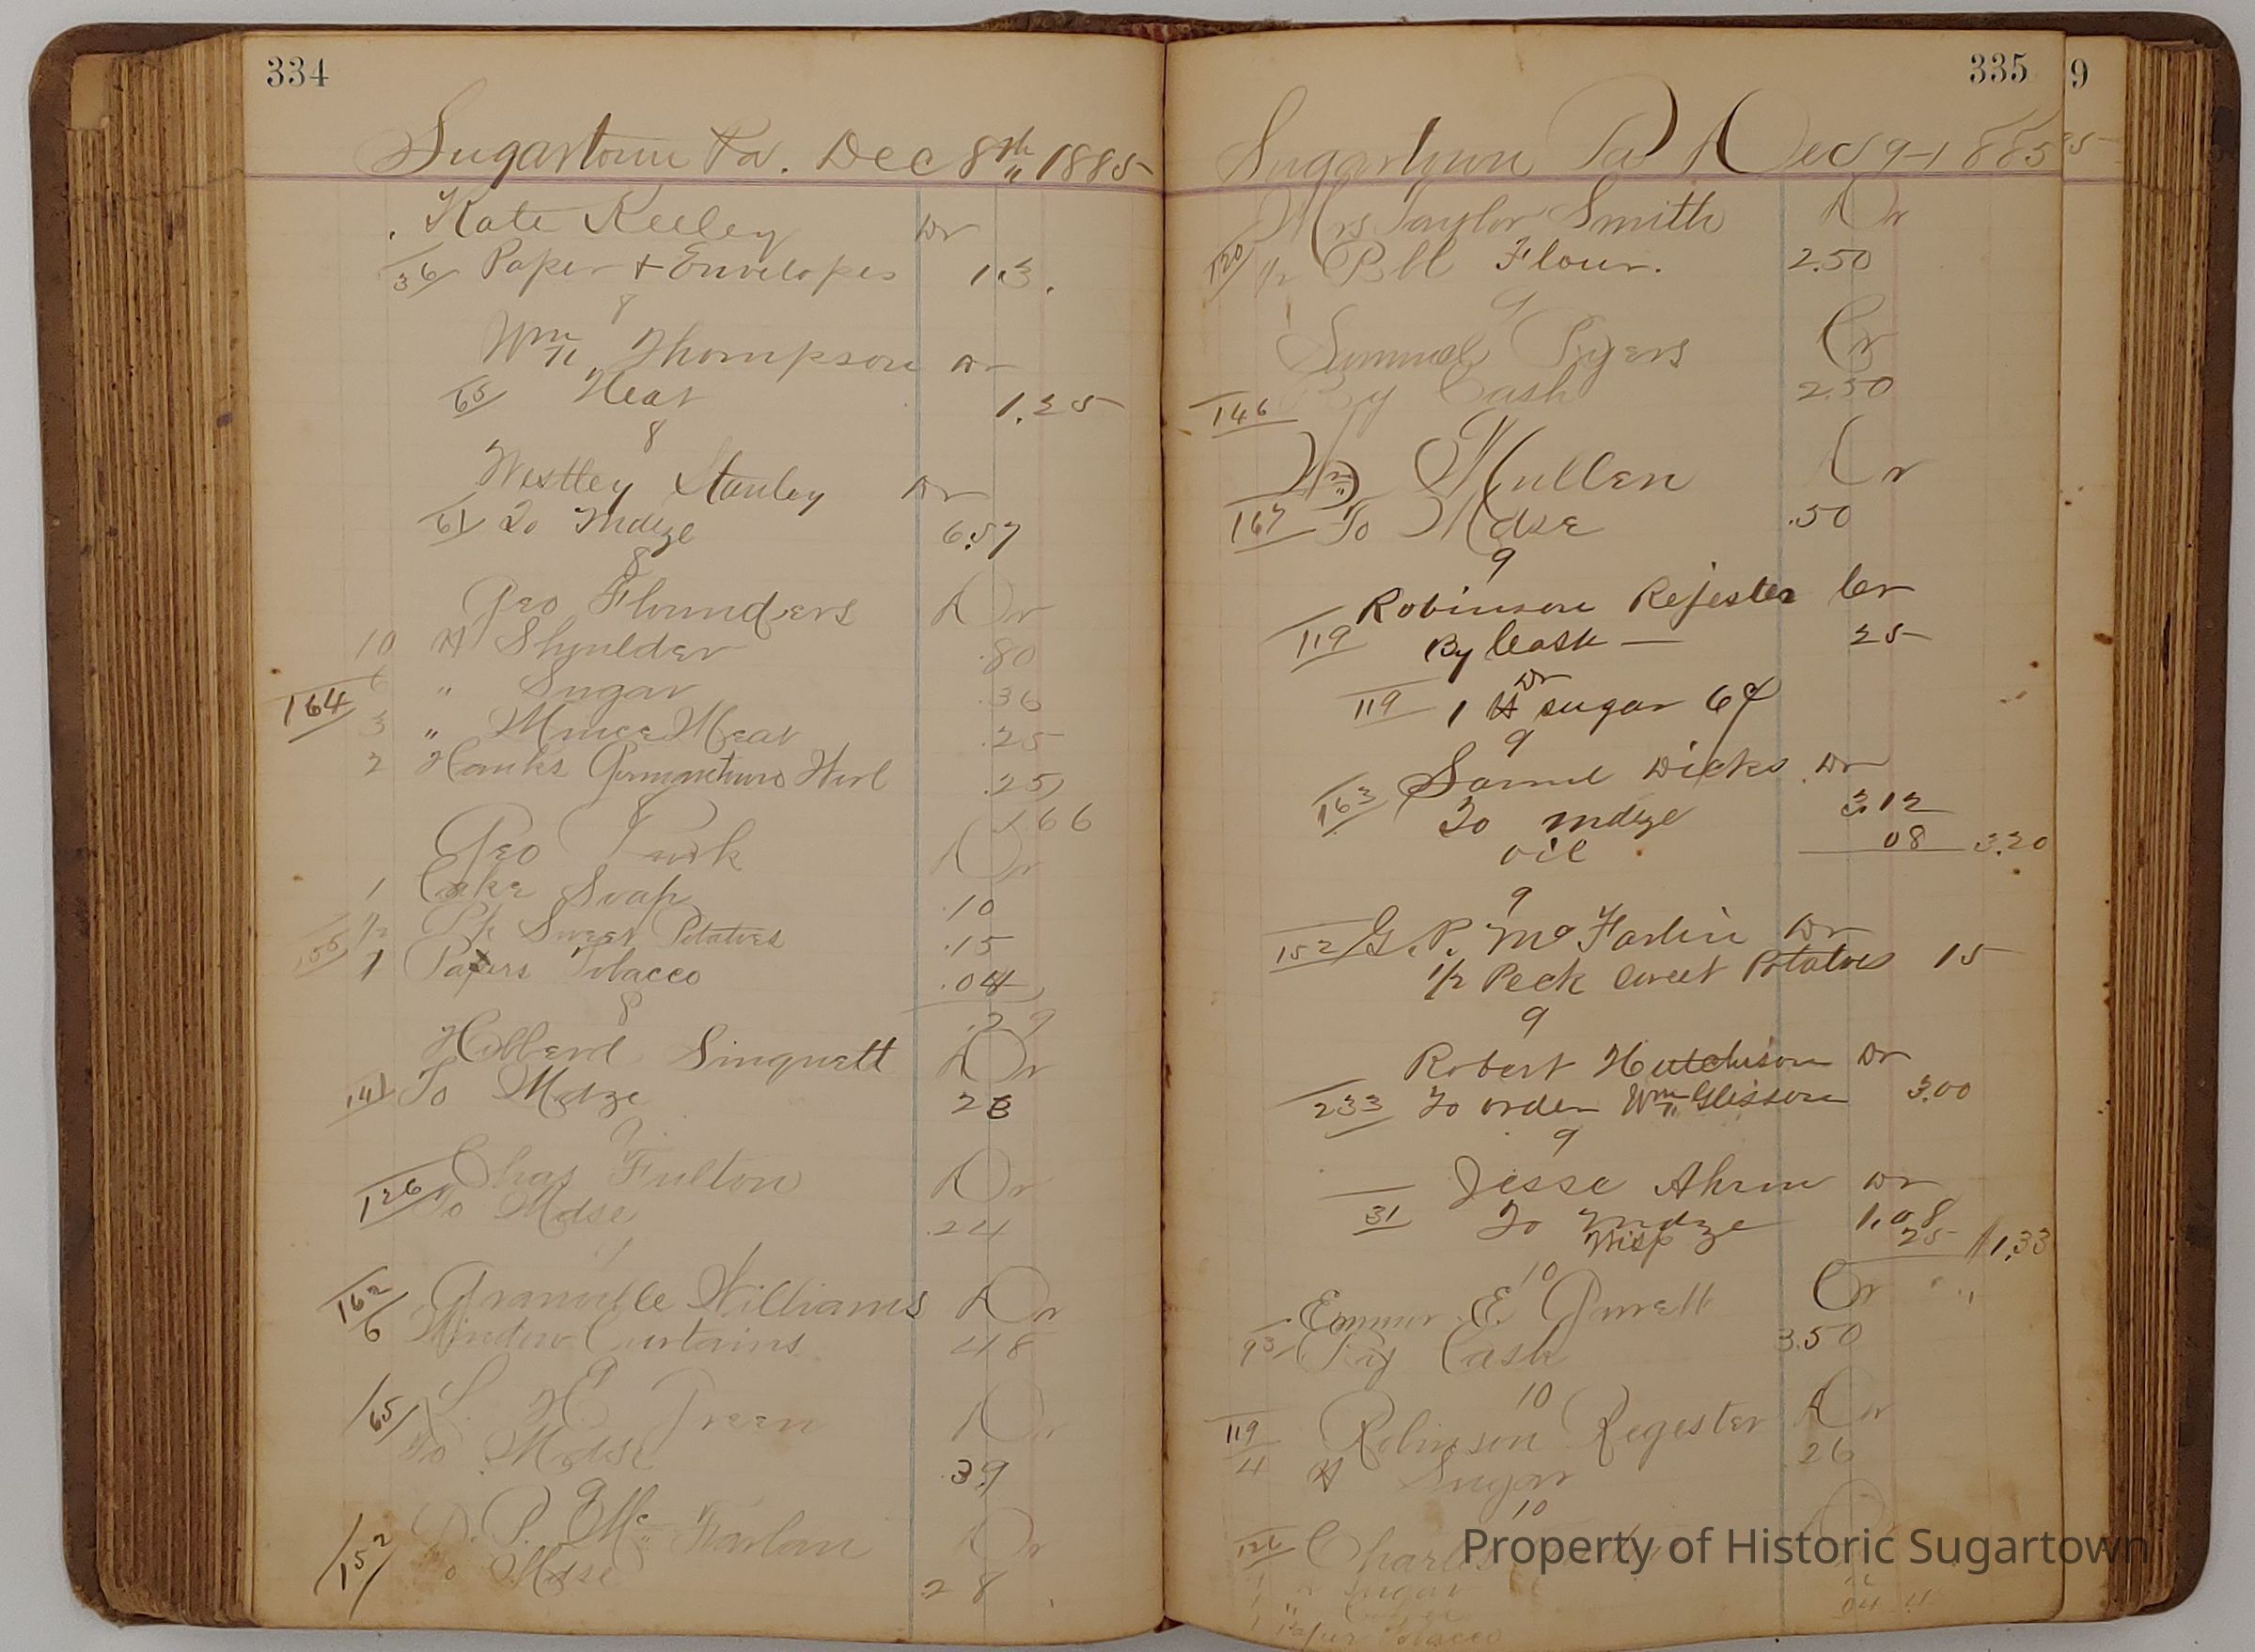 334
Sugartown Pa. Dec 8th 1885
Kate Keeley Dr
36 Paper + Envelopes 13.
8
Wm Thompson Dr
65 Meat 1.25
8
Westley Stanley Dr
61 To Mdze 6.57
8
Geo Flounders Dr
10 # Shoulder .80
6 " Sugar .36
164
3 " Mince Meat .25
2 Hanks Germantown .25
1.66
8
Geo Dr
1 Cake Soap .10
1/2 Pk Sweet Potatoes .15
155
1 Papers Tobacco .04
.29
8
Hibberd Singuett Dr
141 To Mdze 23
9
Chas Fulton Dr
126 To Mdse .24
9
162 Granville Williams Dr
6 Window Curtains 48
9
165 L. H. Green Dr
To Mdse .39
9
152 G. P. Mc Farlan Dr
To Mdse 28
335
9
Sugartown Pa Dec 9-1885
85
Mrs Taylor Smith Dr
120 1/2 Bbl Flour. 2.50
9
Samuel Pyers Cr
146 By Cash 2.50
Wm Mullen Dr
167 To Mdse .50
9
Robinson Rejester Cr
119 By Cash — 25
Dr
119 1 # sugar 6¢
9
Saml Dicks Dr
163 To mdze 3.12
oil 08 3.20
9
152 G. P. Mc Farlin Dr
1/2 Peck sweet Potatoes 15
9
Robert Hutchison Dr
233 To order Wm Glisson 3.00
9
Jesse Ahrm Dr
31 To mdze 1.08
Wisp 25 $1.33
10
Emmor E. Cr
93 By Cash 3.50
10
119 Robinson Regester Dr
4 # Sugar 26
10
126 Charles
1 " Sugar
1 "
1 Paper Tobacco
Property of Historic Sugartown